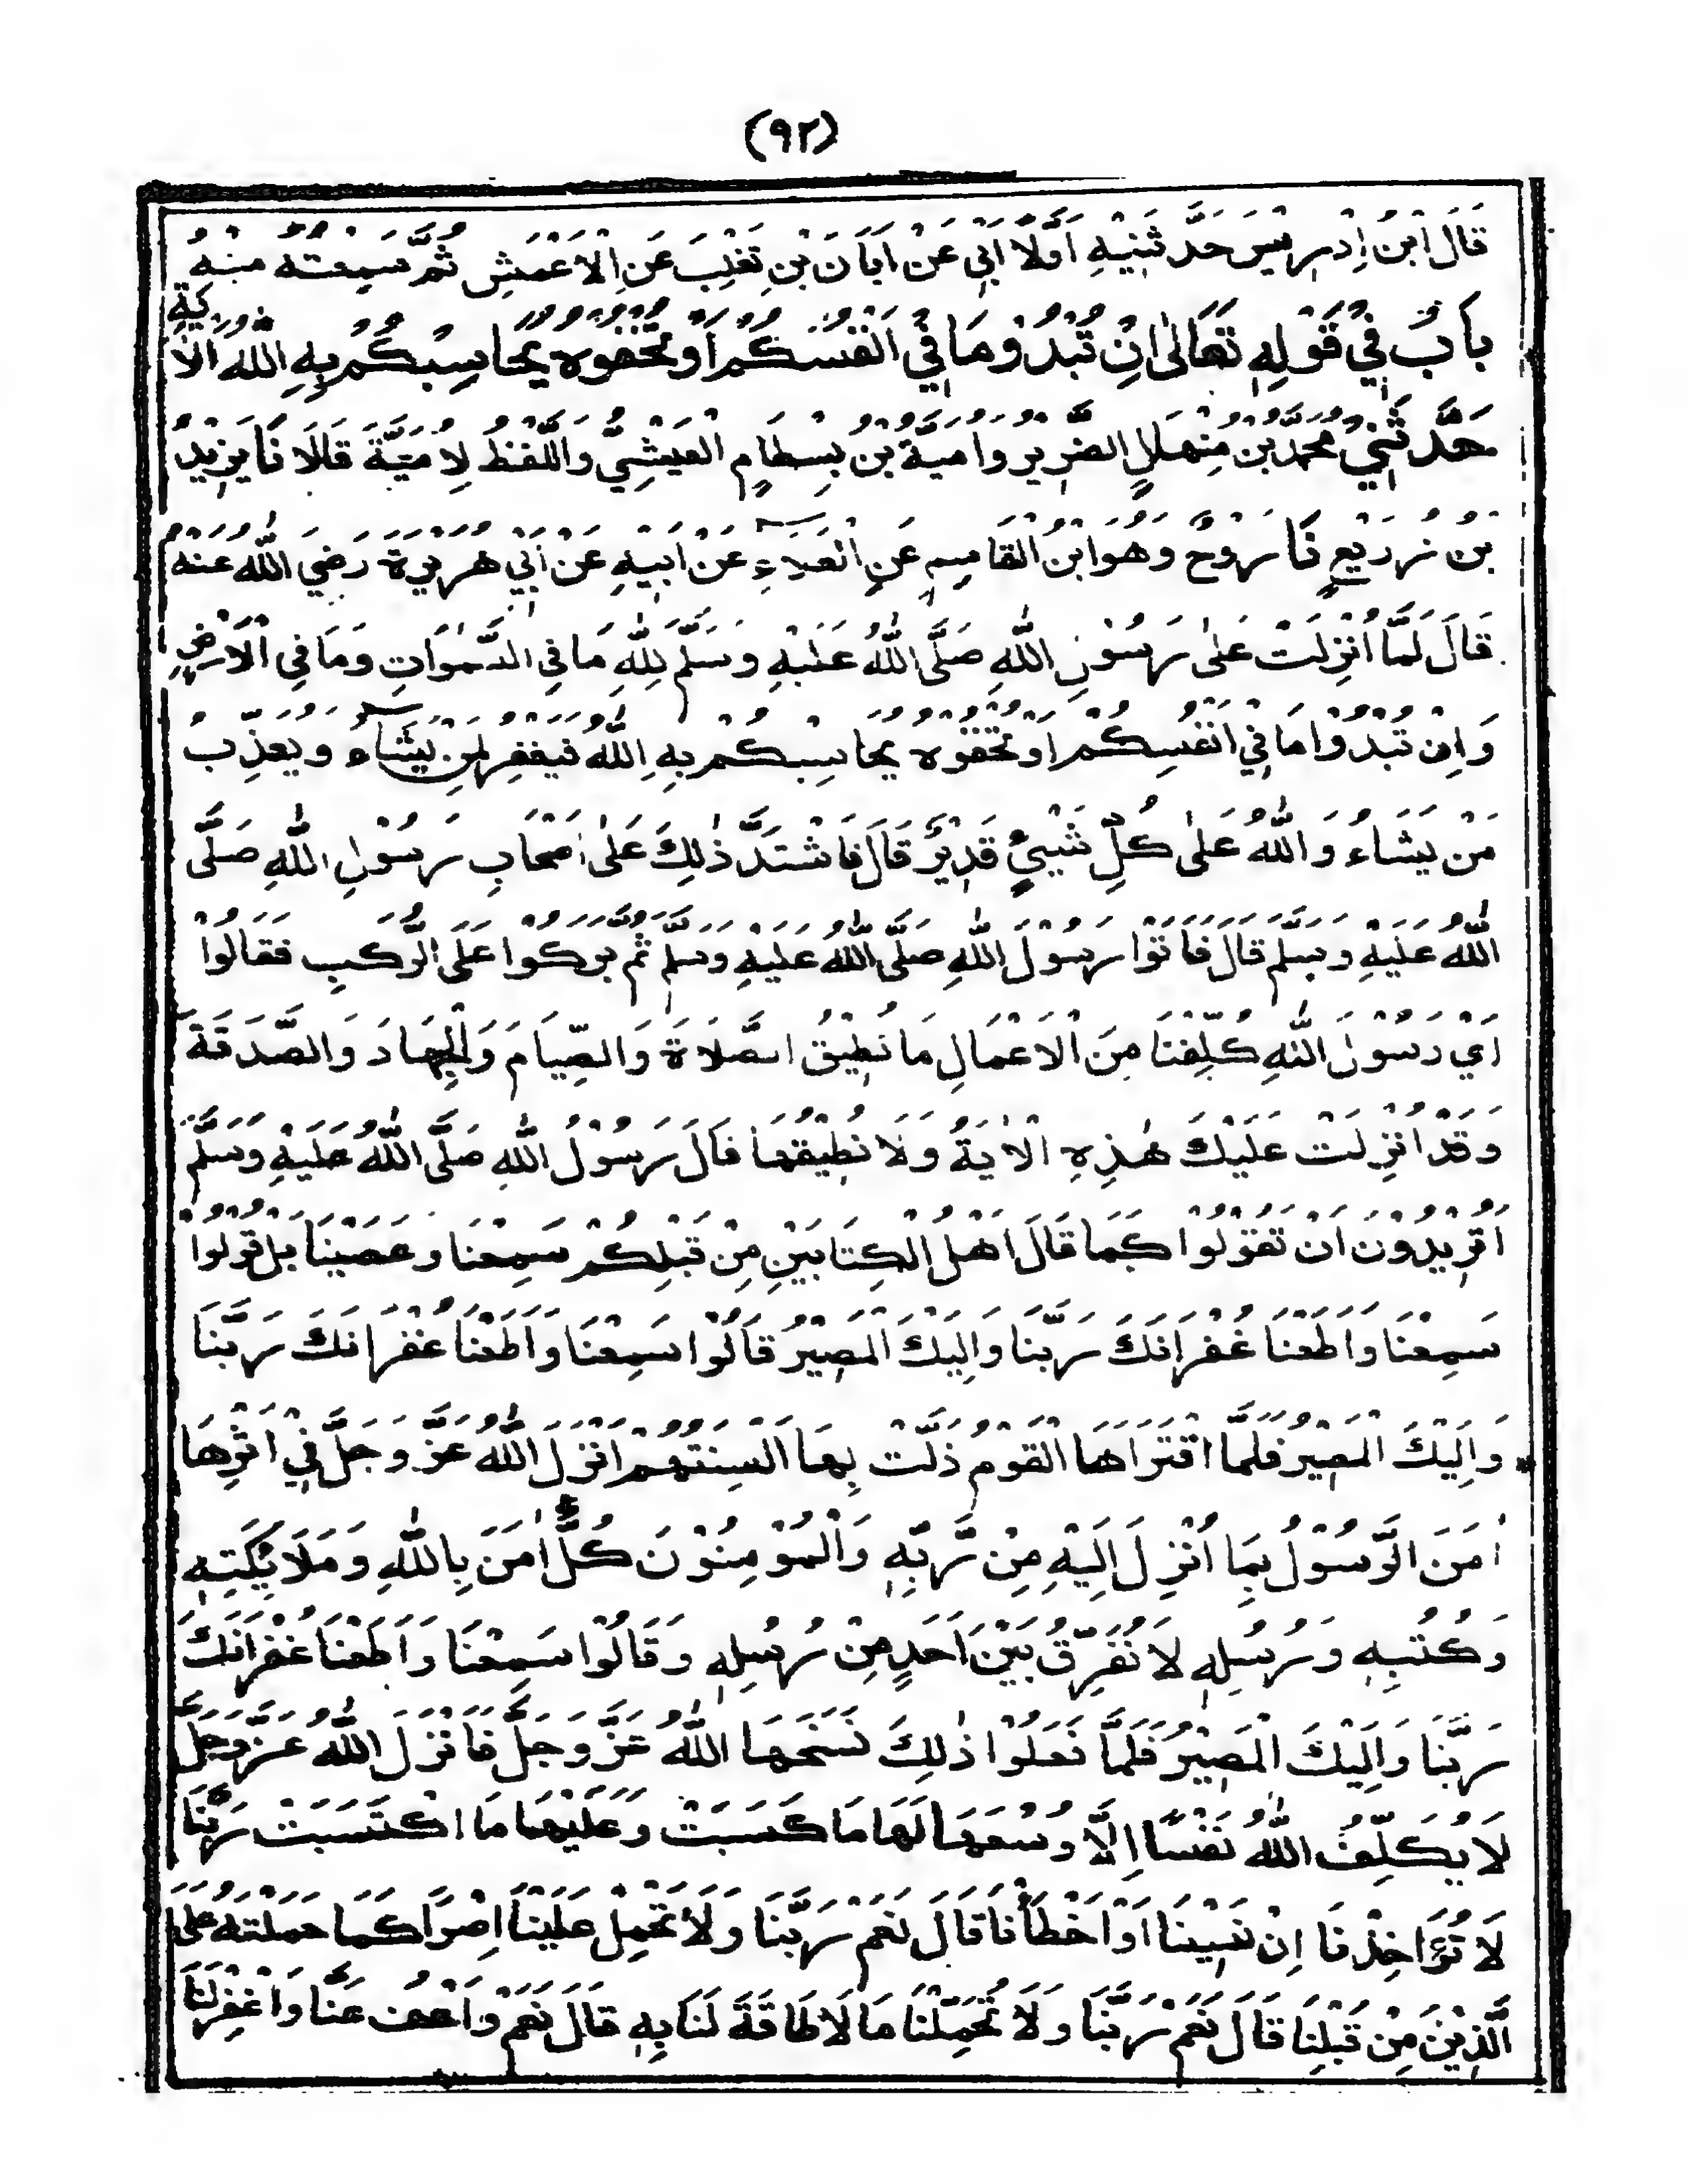 (٩٢)
قَالَ ابْنُ اِدْرِيْسَ حَدَّثَنِيْهِ اَوَّلًا اَبِيْ عَنْ اَبَانَ بْنِ تَغْلِبَ عَنِ الْاَعْمَشِ ثُمَّ سَمِعْتُهُ مِنْهُ
بَابٌ فِيْ قَوْلِهٖ تَعَالٰى اِنْ تُبْدُوْا مَا فِيْ اَنْفُسِكُمْ اَوْ تُخْفُوْهُ يُحَاسِبْكُمْ بِهِ اللّٰهُ الْاٰيَة
حَدَّثَنِيْ مُحَمَّدُ بْنُ مِنْهَالٍ الضَّرِيْرُ وَاُمَيَّةُ بْنُ بِسْطَامٍ الْعَيْشِيُّ وَاللَّفْظُ لِاُمَيَّةَ قَالَا نَا يَزِيْدُ
بْنُ زُرَيْعٍ نَا رَوْحٌ وَهُوَ ابْنُ الْقَاسِمِ عَنِ الْعَلَاءِ عَنْ اَبِيْهِ عَنْ اَبِيْ هُرَيْرَةَ رَضِيَ اللّٰهُ عَنْهُ
قَالَ لَمَّا اُنْزِلَتْ عَلٰى رَسُوْلِ اللّٰهِ صَلَّى اللّٰهُ عَلَيْهِ وَسَلَّمَ لِلّٰهِ مَا فِي السَّمٰوَاتِ وَمَا فِي الْاَرْضِ
وَاِنْ تُبْدُوْا مَا فِيْ اَنْفُسِكُمْ اَوْ تُخْفُوْهُ يُحَاسِبْكُمْ بِهِ اللّٰهُ فَيَغْفِرُ لِمَنْ يَّشَاءُ وَيُعَذِّبُ
مَنْ يَشَاءُ وَاللّٰهُ عَلٰى كُلِّ شَيْئٍ قَدِيْرٌ قَالَ فَاشْتَدَّ ذٰلِكَ عَلٰى اَصْحَابِ رَسُوْلِ اللّٰهِ صَلَّى
اللّٰهُ عَلَيْهِ وَسَلَّمَ قَالَ فَاَتَوْا رَسُوْلَ اللّٰهِ صَلَّى اللّٰهُ عَلَيْهِ وَسَلَّمَ ثُمَّ بَرَكُوْا عَلَى الرُّكَبِ فَقَالُوْا
اَيْ رَسُوْلَ اللّٰهِ كُلِّفْنَا مِنَ الْاَعْمَالِ مَا نُطِيْقُ الصَّلَاةَ وَالصِّيَامَ وَالْجِهَادَ وَالصَّدَقَةَ
وَقَدْ اُنْزِلَتْ عَلَيْكَ هٰذِهِ الْاٰيَةُ وَلَا نُطِيْقُهَا قَالَ رَسُوْلُ اللّٰهِ صَلَّى اللّٰهُ عَلَيْهِ وَسَلَّمَ
اَتُرِيْدُوْنَ اَنْ تَقُوْلُوْا كَمَا قَالَ اَهْلُ الْكِتَابَيْنِ مِنْ قَبْلِكُمْ سَمِعْنَا وَعَصَيْنَا بَلْ قُوْلُوْا
سَمِعْنَا وَاَطَعْنَا غُفْرَانَكَ رَبَّنَا وَاِلَيْكَ الْمَصِيْرُ قَالُوْا سَمِعْنَا وَاَطَعْنَا غُفْرَانَكَ رَبَّنَا
وَاِلَيْكَ الْمَصِيْرُ فَلَمَّا اقْتَرَاَهَا الْقَوْمُ ذَلَّتْ بِهَا اَلْسِنَتُهُمْ اَنْزَلَ اللّٰهُ عَزَّ وَجَلَّ فِيْ اَثَرِهَا
اٰمَنَ الرَّسُوْلُ بِمَا اُنْزِلَ اِلَيْهِ مِنْ رَّبِّهٖ وَالْمُوْمِنُوْنَ كُلٌّ اٰمَنَ بِاللّٰهِ وَمَلَائِكَتِهٖ
وَكُتُبِهٖ وَرُسُلِهٖ لَا نُفَرِّقُ بَيْنَ اَحَدٍ مِنْ رُسُلِهٖ وَقَالُوْا سَمِعْنَا وَاَطَعْنَا غُفْرَانَكَ
رَبَّنَا وَاِلَيْكَ الْمَصِيْرُ فَلَمَّا فَعَلُوْا ذٰلِكَ نَسَخَهَا اللّٰهُ عَزَّ وَجَلَّ فَاَنْزَلَ اللّٰهُ عَزَّ وَجَلَّ
لَا يُكَلِّفُ اللّٰهُ نَفْسًا اِلَّا وُسْعَهَا لَهَا مَا كَسَبَتْ وَعَلَيْهَا مَا اكْتَسَبَتْ رَبَّنَا
لَا تُؤَاخِذْنَا اِنْ نَسِيْنَا اَوْ اَخْطَأْنَا قَالَ نَعَمْ رَبَّنَا وَلَا تَحْمِلْ عَلَيْنَا اِصْرًا كَمَا حَمَلْتَهُ عَلَى
الَّذِيْنَ مِنْ قَبْلِنَا قَالَ نَعَمْ رَبَّنَا وَلَا تُحَمِّلْنَا مَا لَا طَاقَةَ لَنَا بِهٖ قَالَ نَعَمْ وَاعْفُ عَنَّا وَاغْفِرْ لَنَا